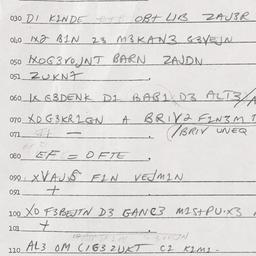 030 DI KINDE OBT LIB ZAJ3R
040 B1N 23 M3KAN3 G3VEJN
050 BARN ZAJDN
051 ZUKN7
060 G3DENK D1 BAB1 D3 ALT3/
070 X0G3KR1GN A BR1V2 F1N3M
071 — /BRIV UNEQ
080 EF = OFTE
090 XVAJS F1N VEJM1N
091 +
100 X0 F3BEJTN D3 GANC3
101 +
110 AL3 OM C1G3ZUKT C2 K1M1-